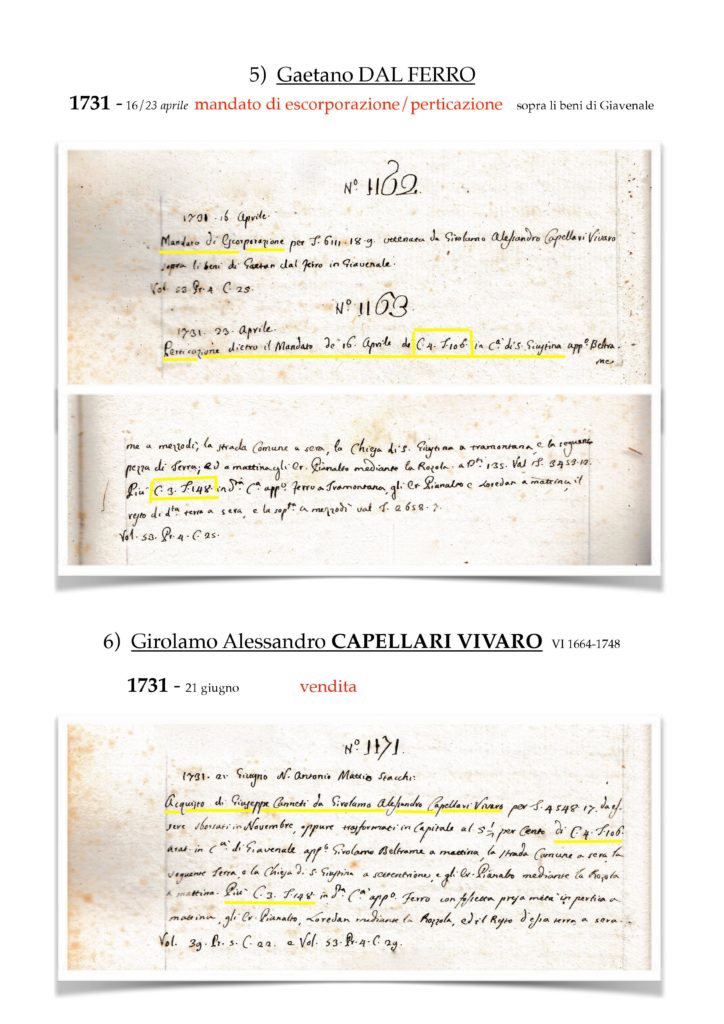 5) Gaetano DAL FERRO
1731 - 16/23 aprile mandato di escorporazione/perticazione sopra li beni di Giavenale
N.o 1162.
1731. 16 Aprile.
Mandato di Escorporazione per S. 6111. 18. 9. ottenuta da Girolamo Alessandro Capellari Vivaro
sopra li beni di Gaetan dal ferro in Giavenale.
Vol. 53. Pr. 4. C. 25.
N.o 1163
1731. 23. Aprile.
Perticazione dietro il Mandato de' 16. Aprile de C. 4. T. 106. in C.a di S. Giustina app.o Beltra-
me
me a mezzodì, la strada Comune a sera, la Chiesa di S. Giustina a tramontana, e la seguente
pezza di Terra, ed a mattina gli Cr. Pianalto mediante la Rozola. a D.ti 135. Val S. 3453.
Più C. 3. T. 148. in d.ta C.a app.o ferro a Tramontana, gli Cr. Pianalto e Loredan a mattina, il
resto di d.ta terra a sera, e la sop.ta a mezzodì val S. 2658. 7.
Vol. 53. Pr. 4. C. 25.
6) Girolamo Alessandro CAPELLARI VIVARO VI 1664-1748
1731 - 21 giugno vendita
N.o 1171.
1731. 21 Giugno N. Antonio Mattio Stacchi:
Acquisto di Giuseppe Canneti da Girolamo Alessandro Capellari Vivaro per S. 4548. 17. da es-
sere sborsati in Novembre, oppure trasformati in Capitale al 5 1/2 per Cento di C. 4. T. 106.
arat. in C.a di Giavenale app.o Girolamo Beltrame a mattina, la strada Comune a sera la
seguente Terra, e la Chiesa di S. Giustina a settentrione, e gli Cr. Pianalto mediante la Rozola
a mattina. Più C. 3. T. 148 in d.ta C.a app.o ferro con fossetta presa metà in pertica a
mattina, gli Cr. Pianalto, Loredan mediante la Rozzola, ed il Resto d'essa terra a sera.
Vol. 39. Pr. 5. C. 22. e Vol. 53. Pr. 4. C. 29.